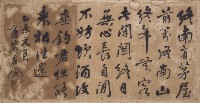 終南有茅屋
前對終南山
終年無客
閉關終日
無心長自閒
不妨飲酒復
垂釣君但能
來相往還